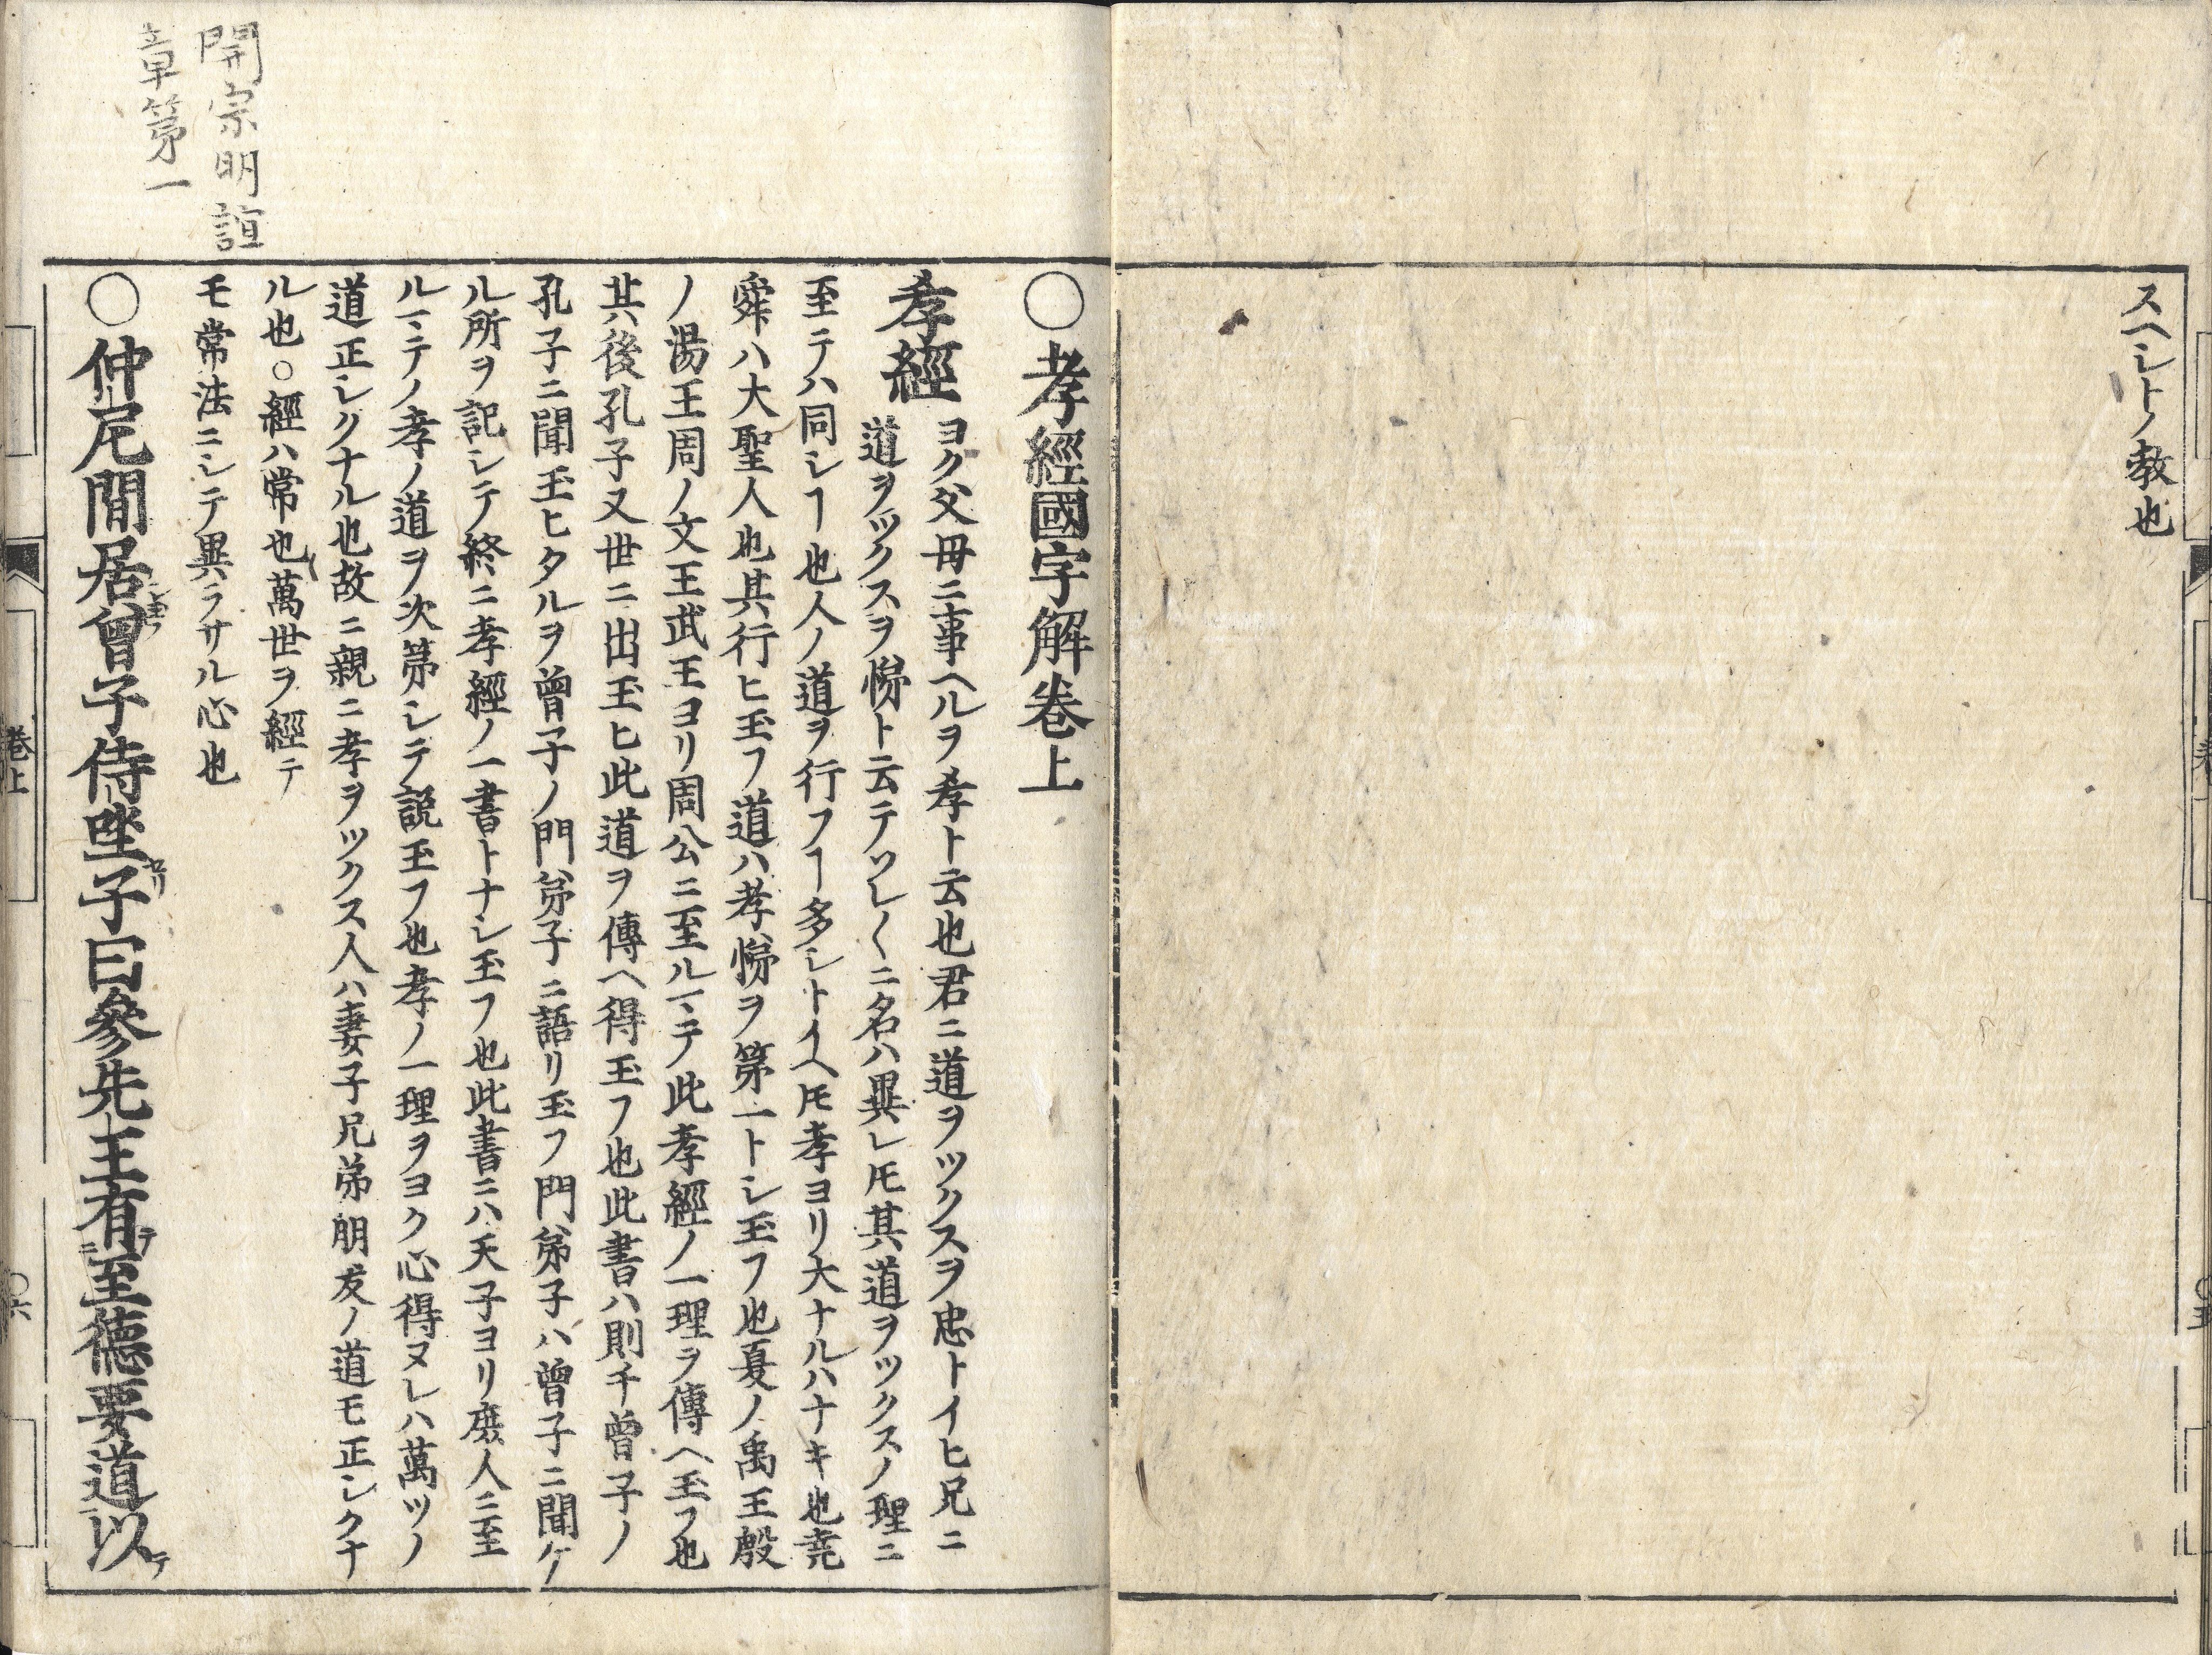 スヘシトノ教也
○孝經國字解卷上
孝經
ヨク父母ニ事ヘルヲ孝ト云也君ニ道ヲツクスヲ忠トイヒ兄ニ
道ヲツクスヲ悌ト云テソレ〱ニ名ハ異レ𪜈其道ヲツクスノ理ニ
至テハ同シヿ也人ノ道ヲ行フヿ多シトイヘ𪜈孝ヨリ大ナルハナキ也堯
舜ハ大聖人也其行ヒ玉フ道ハ孝悌ヲ第一トシ玉フ也夏ノ禹王殷
ノ湯王周ノ文王武王ヨリ周公ニ至ルマテ此孝經ノ一理ヲ傳ヘ玉フ也
其後孔子又世ニ出玉ヒ此道ヲ傳ヘ得玉フ也此書ハ則チ曾子ノ
孔子ニ聞玉ヒタルヲ曾子ノ門弟子ニ語リ玉フ門弟子ハ曾子ニ聞ケ
ル所ヲ記シテ終ニ孝經ノ一書トナシ玉フ也此書ニハ天子ヨリ庶人ニ至
ルマテノ孝ノ道ヲ次第シテ説玉フ也孝ノ一理ヲヨク心得ヌレハ萬ツノ
道正シクナル也故ニ親ニ孝ヲツクス人ハ妻子兄弟朋友ノ道モ正シクナ
ル也○經ハ常也萬世ヲ經テ
モ常法ニシテ異ラサル心也
開宗明誼
章第一
○仲尼間居曾子侍坐子曰參先王有至德要道以
卷上
○六